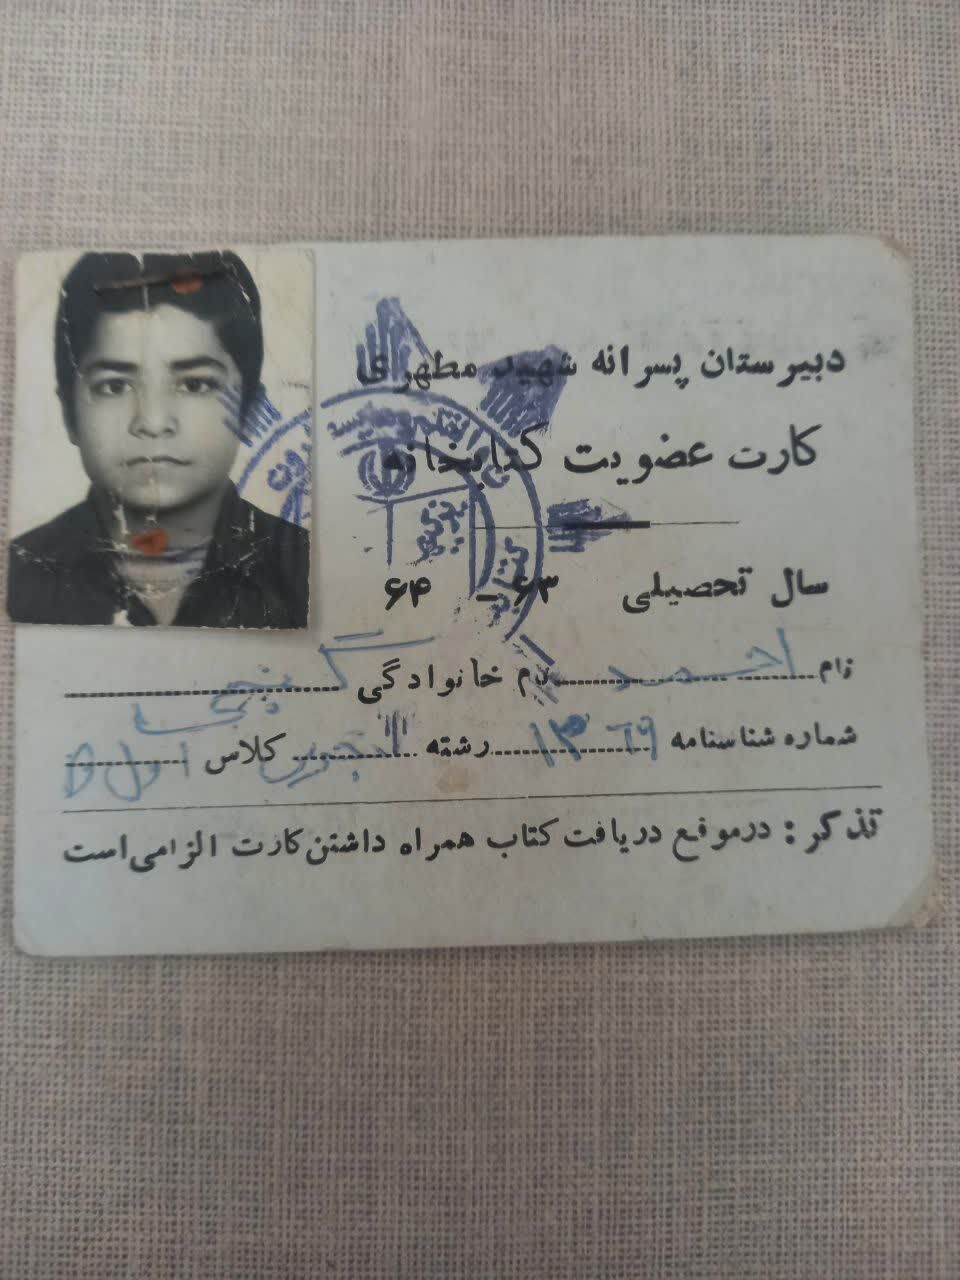 دبیرستان پسرانه شهید مطهری
کارت عضویت کتابخانه
سال تحصیلی ۶۳ - ۶۴
نام احمد نام خانوادگی گنجی
شماره شناسنامه رشته تجربی کلاس اول
تذکر : در موقع دریافت کتاب همراه داشتن کارت الزامی است